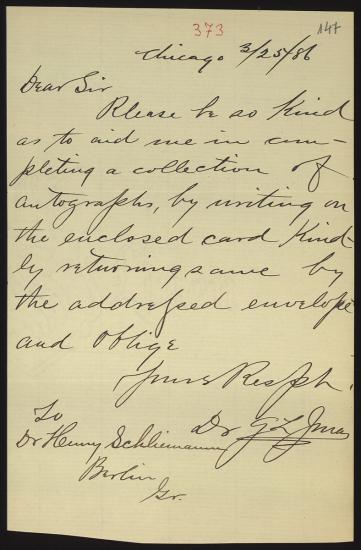 373 147
Chicago 3/25/86
Dear Sir
Please be so Kind
as to aid me in com-
pleting a collection of
autographs, by writing on
the enclosed card Kind-
ly returning same by
the addressed envelope
and oblige
Yours Respfh.
Dr G L
To
Dr Henry Schliemann
Berlin
Gr.